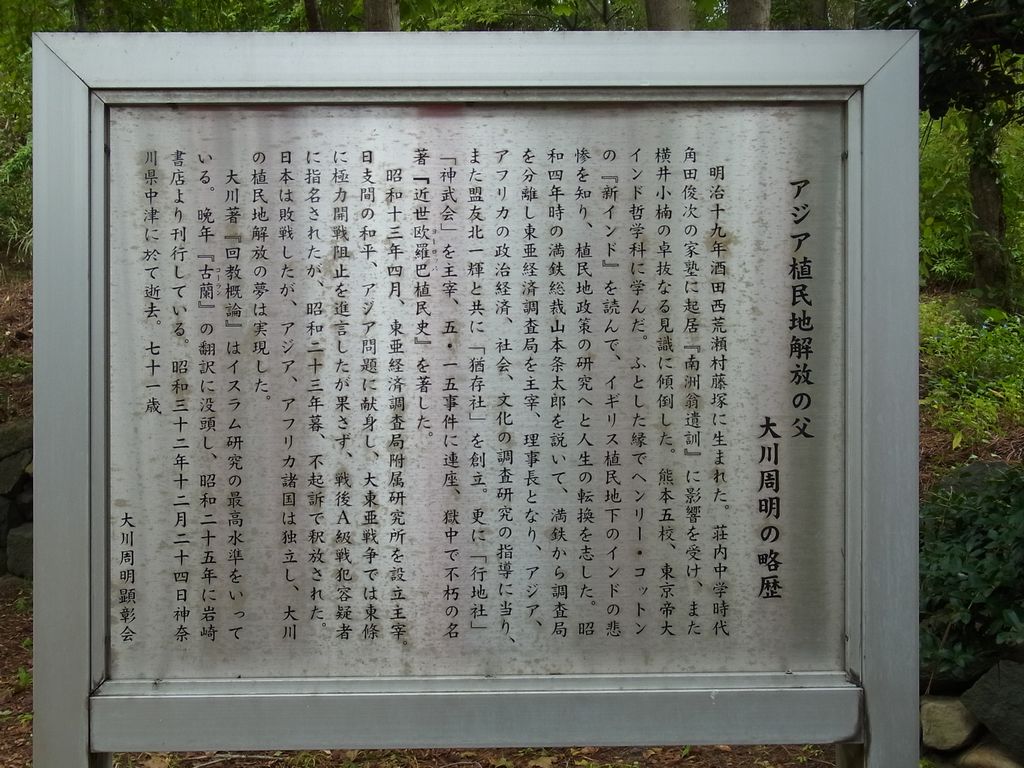 アジア植民地解放の父
大川周明の略歴
明治十九年酒田西荒瀬村藤塚に生まれた。荘内中学時代
角田俊次の家塾に起居『南洲翁遺訓』に影響を受け、また
横井小楠の卓抜なる見識に傾倒した。熊本五校、東京帝大
インド哲学科に学んだ。ふとした縁でヘンリー・コットン
の『新インド』を読んで、イギリス植民地下のインドの悲
惨を知り、植民地政策の研究へと人生の転換を志した。昭
和四年時の満鉄総裁山本条太郎を説いて、満鉄から調査局
を分離し東亜経済調査局を主宰、理事長となり、アジア、
アフリカの政治経済、社会、文化の調査研究の指導に当り、
また盟友北一輝と共に「猶存社」を創立。更に「行地社」
「神武会」を主宰、五・一五事件に連座、獄中で不朽の名
著『近世欧羅巴植民史』を著した。
ヨーロッパ
昭和十三年四月、東亜経済調査局附属研究所を設立主宰。
日支間の和平、アジア問題に献身し、大東亜戦争では東條
に極力開戦阻止を進言したが果さず、戦後A級戦犯容疑者
に指名されたが、昭和二十三年暮、不起訴で釈放された。
日本は敗戦したが、アジア、アフリカ諸国は独立し、大川
の植民地解放の夢は実現した。
大川著『回教概論』はイスラム研究の最高水準をいって
いる。晩年『古蘭』の翻訳に没頭し、昭和二十五年に岩崎
コーラン
書店より刊行している。昭和三十二年十二月二十四日神奈
川県中津に於て逝去。七十一歳
大川周明顕彰会